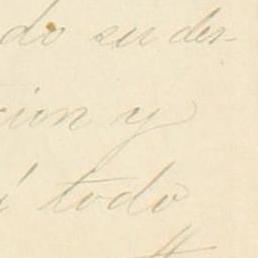 do su des-
cion y
í todo